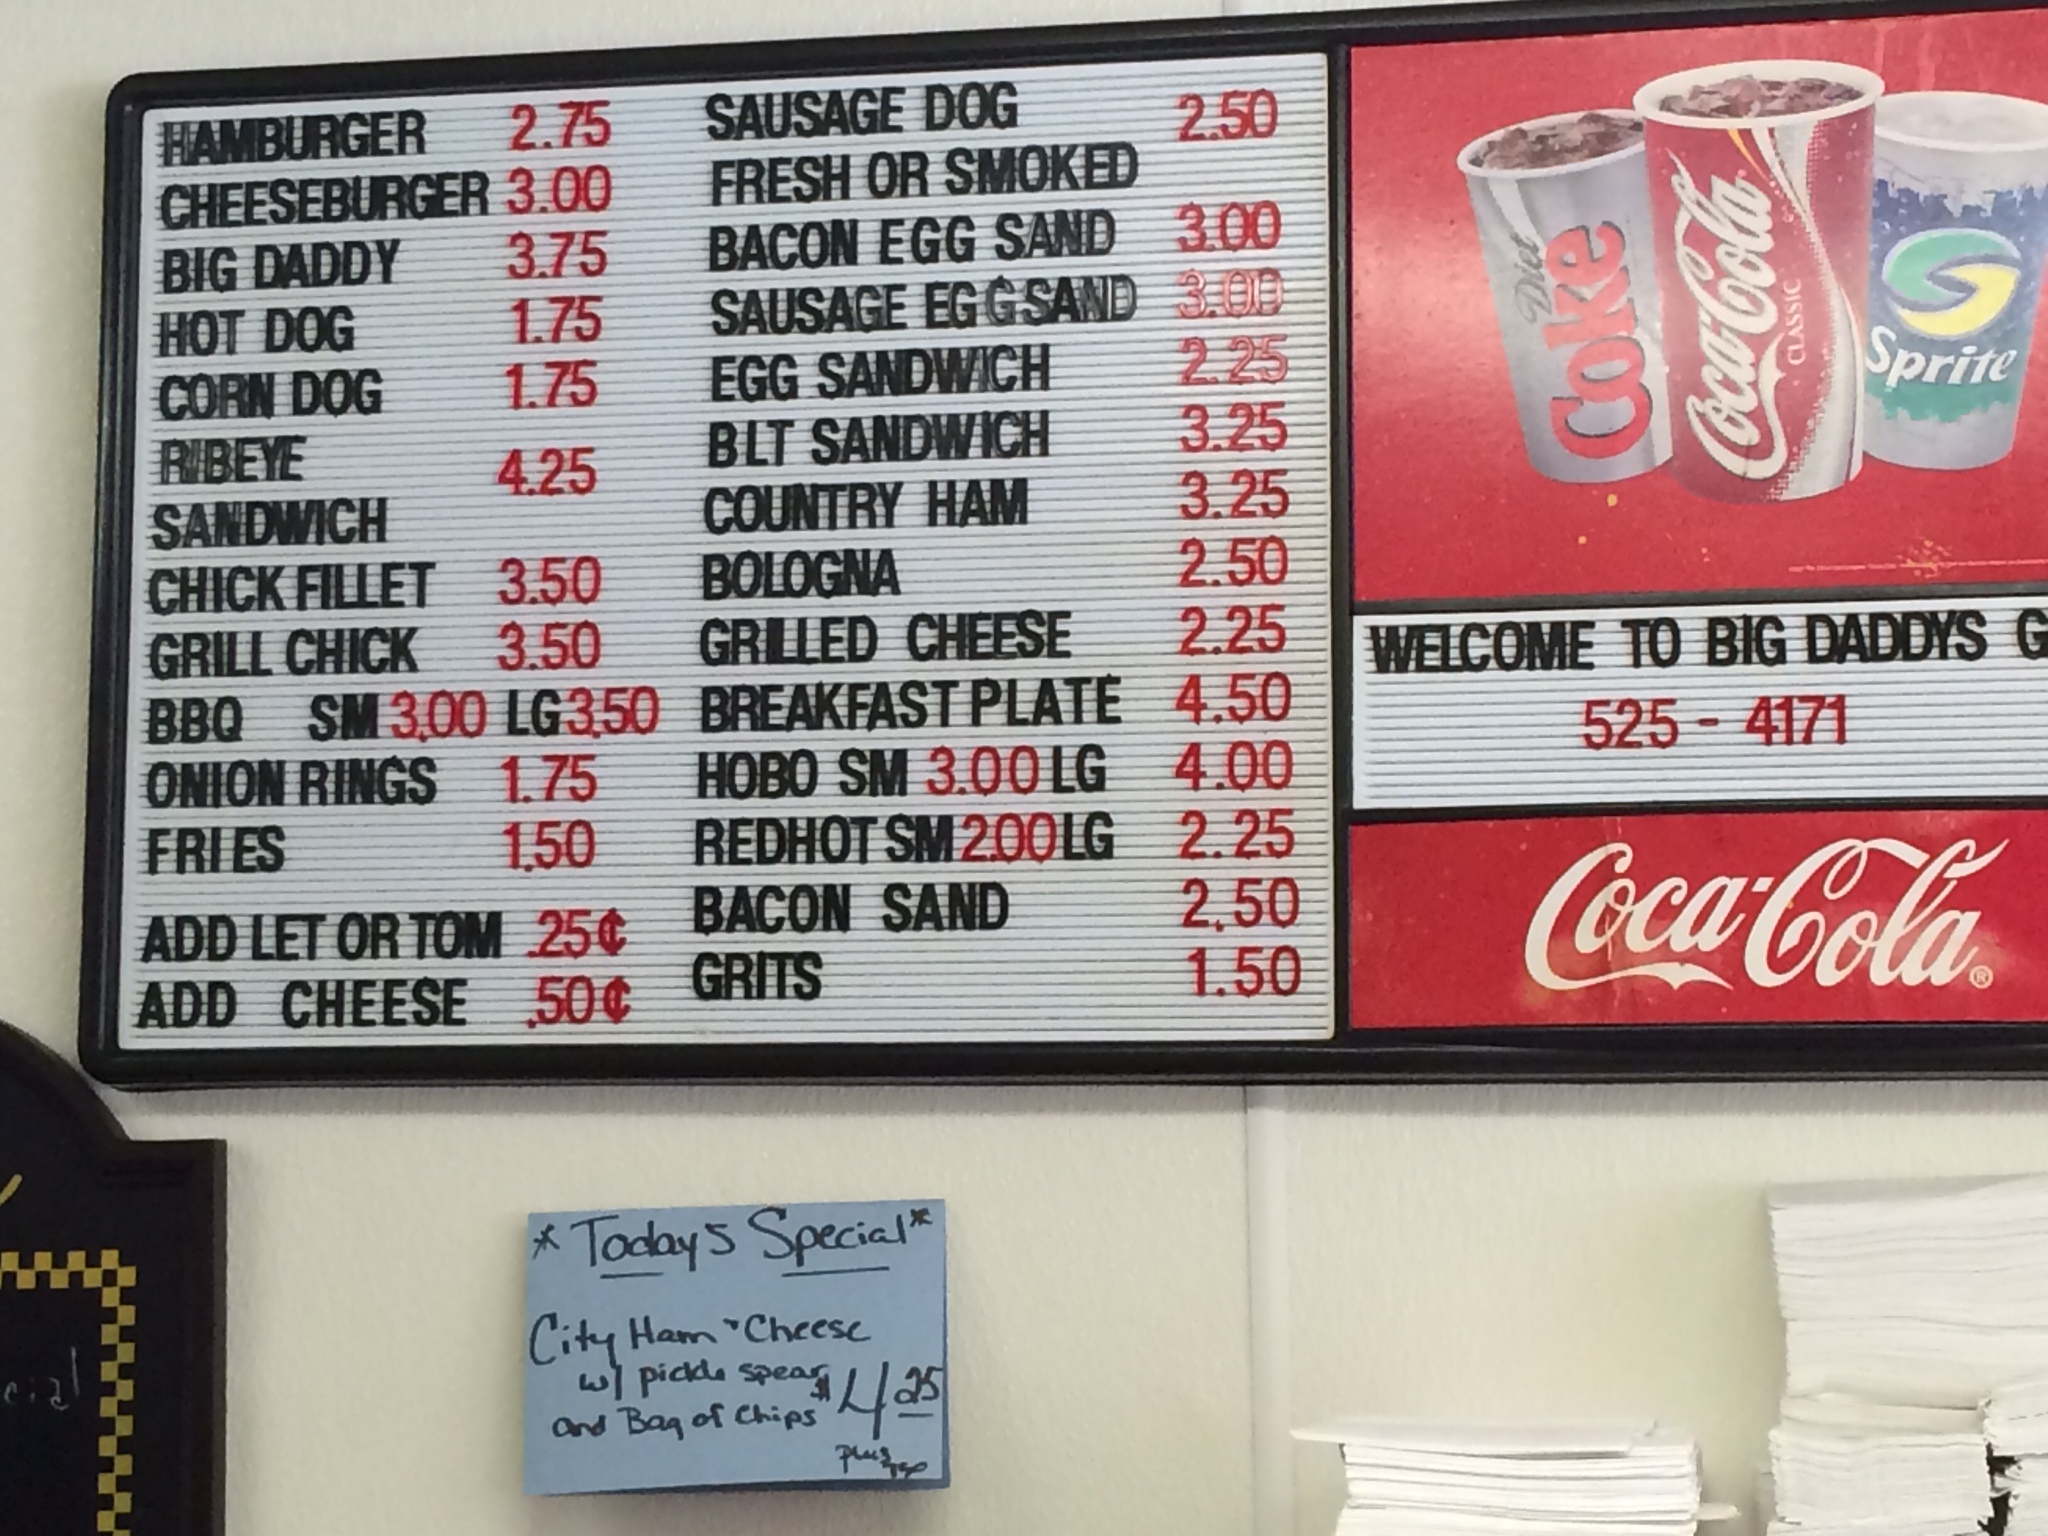 HAMBURGER 2.75
CHEESEBURGER 3.00
BIG DADDY 3.75
HOT DOG 1.75
CORN DOG 1.75
RIBEYE 4.25
SANDWICH
CHICK FILLET 3.50
GRILL CHICK 3.50
BBQ SM 3.00 LG 3.50
ONION RINGS 1.75
FRIES 1.50
ADD LET OR TOM .25¢
ADD CHEESE .50¢
SAUSAGE DOG 2.50
FRESH OR SMOKED
BACON EGG SAND 3.00
SAUSAGE EGG SAND 3.00
EGG SANDWICH 2.25
BLT SANDWICH 3.25
COUNTRY HAM 3.25
BOLOGNA 2.50
GRILLED CHEESE 2.25
BREAKFAST PLATE 4.50
HOBO SM 3.00 LG 4.00
REDHOT SM 2.00 LG 2.25
BACON SAND 2.50
GRITS 1.50
Diet Coke
Coca-Cola
CLASSIC
Sprite
WELCOME TO BIG DADDYS G
525 - 4171
Coca-Cola®
*Today's Special*
City Ham + Cheese
w/ pickle spear
and Bag of Chips $4.25
plus tax
cial